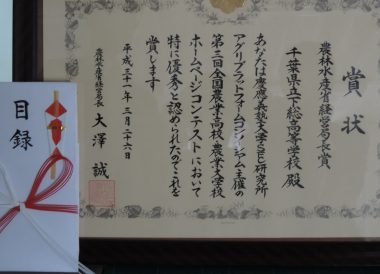 賞状
農林水産省経営局長賞
千葉県立下総高等学校 殿
あなたは慶應義塾大学SFC研究所
アグリプラットフォームコンソーシアム主催の
第三回全国農業高校・農業大学校
ホームページコンテストにおいて
特に優秀と認められたのでこれを
賞します
平成三十一年二月二十六日
農林水産省経営局長 大澤 誠
目録